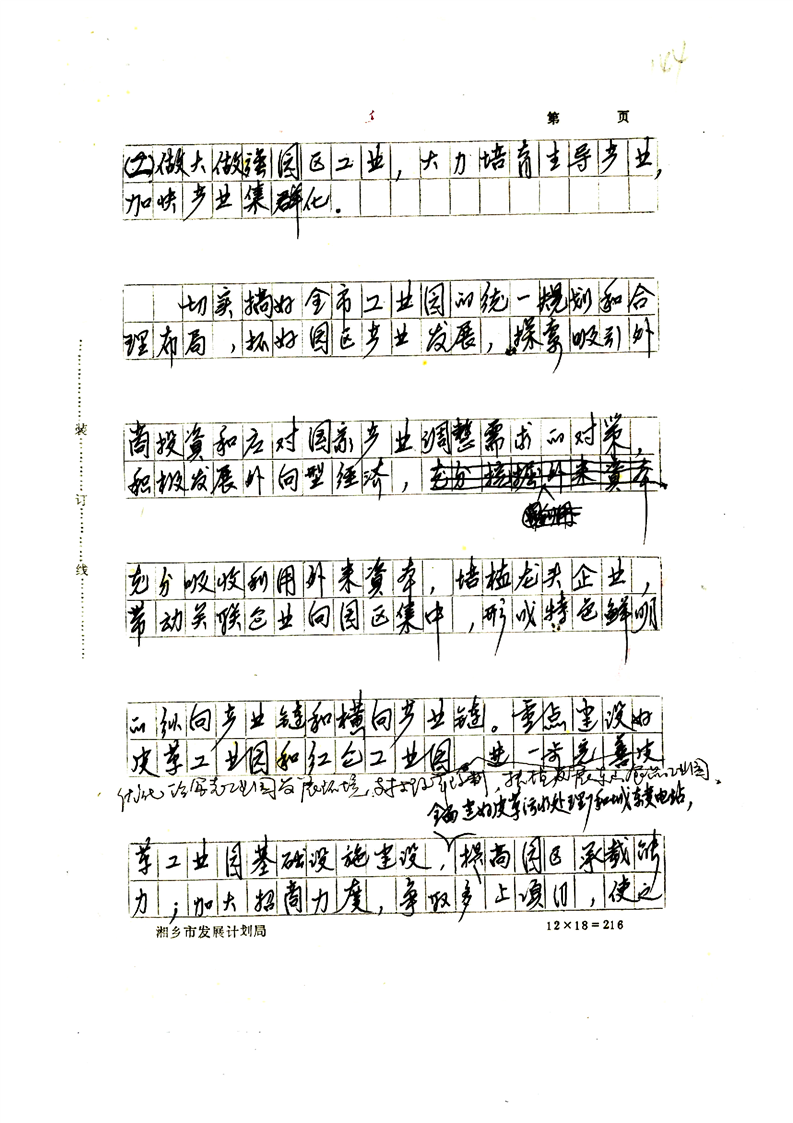 第 页
(二)做大做强园区工业，大力培育主导产业，
加快产业集群化。
切实搞好全市工业园的统一规划和合
理布局，抓好园区产业发展，探索吸引外
商投资和应对国家产业调整需求的对策，
积极发展外向型经济，充分挖掘外来资本
充分吸收利用外来资本，培植龙头企业，
带动关联企业向园区集中，形成特色鲜明
的纵向产业链和横向产业链。重点建设好
皮革工业园和红仑工业园，进一步完善皮
优化 工业园发展环境， 工业园。
全面建好皮革污水处理厂和城东变电站，
革工业园基础设施建设，提高园区承载能
力；加大招商力度，争取多上项目，使之
湘乡市发展计划局 12×18=216
装 订 线